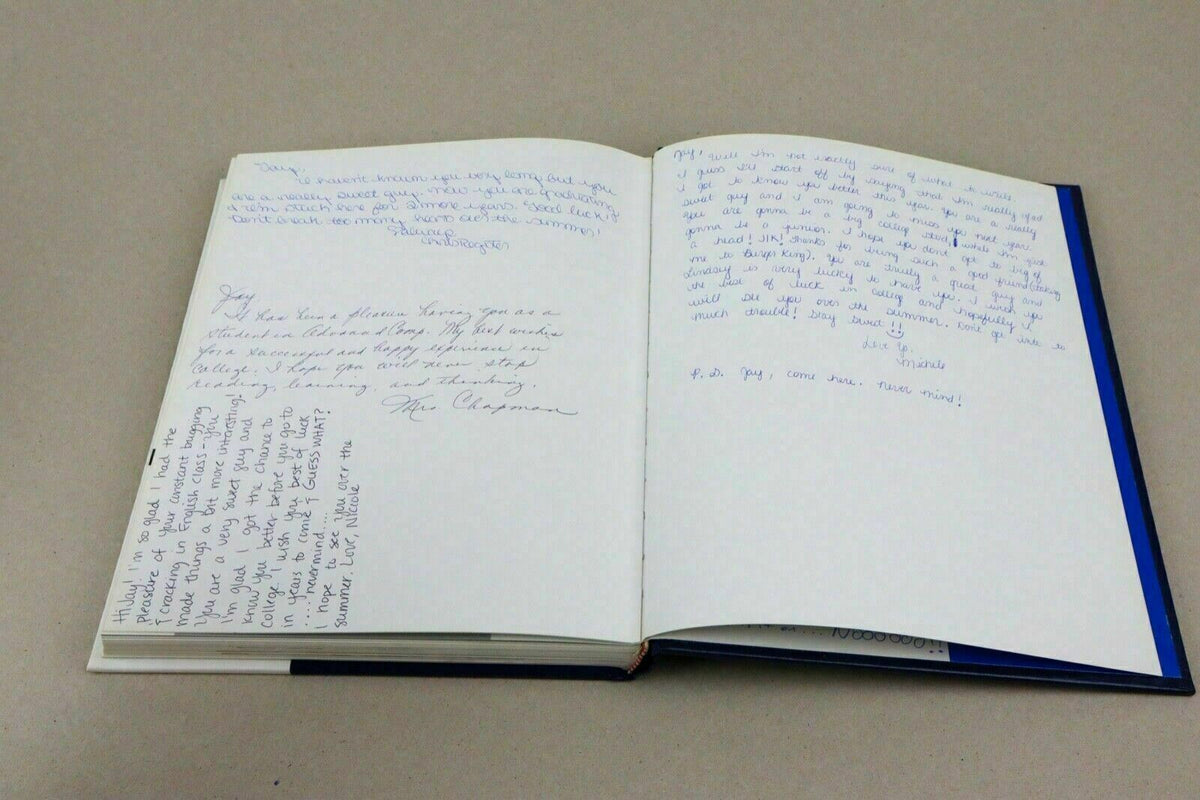 Jay,
I haven't known you very long but you
are a really sweet guy. Now you are graduating
& I'm stuck here for 2 more years. Good luck &
Don't break too many hearts over the summer!
Jay
It has been a pleasure having you as a
student in Advanced Comp. My best wishes
for a successful and happy experience in
College. I hope you will never stop
reading, learning, and thinking.
Mrs Chapman
Hi Jay! I'm so glad I had the
pleasure of your constant bugging
& cracking in English class - you
made things a bit more interesting!
You are a very sweet guy and
I'm glad I got the chance to
know you better before you go to
College. I wish you best of luck
in years to come & GUESS WHAT?
.... nevermind....
I hope to see you over the
summer. Love, Nicole
Jay, Well I'm not exactly sure of what to write
I guess I'll start off by saying that I'm really glad
I got to know you better this year. You are a really
sweet guy and I am going to miss you next year.
You are gonna be a big college stud, while I'm just
gonna be a junior. I hope you dont get to big of
a head! J/K! Thanks for being such a good friend (taking
me to Burger King). You are truly a great guy and
Lindsey is very lucky to have you. I wish you
the best of luck in colleg and hopefully I
will see you over the summer. Dont get into to
much trouble! Stay Sweet!!
Love Ya,
Michele
P.S. Jay, come here. never mind!